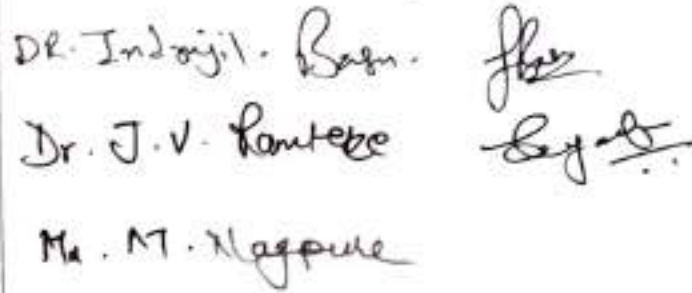 DR. Indrajil. Basu.
Dr. J. V. Ramteke
M. Nagpure